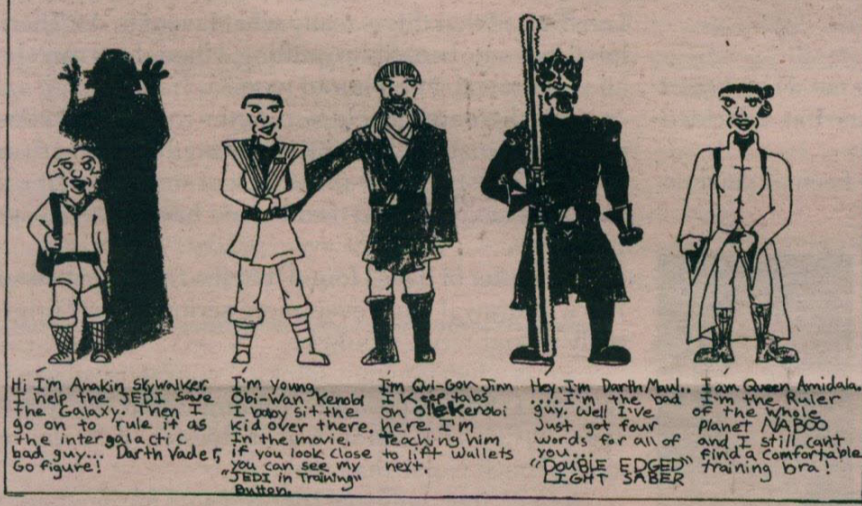 Hi I'm Anakin Skywalker.
I help the JEDI save
the Galaxy. Then I
go on to rule it as
the intergalactic
bad guy... Darth Vader,
Go figure!
I'm young
Obi-Wan Kenobi
I baby sit the
kid over there.
In the movie,
if you look close
you can see my
"JEDI in Training"
Button.
I'm Qui-Gon Jinn
I Keep tabs
on Kenobi
here. I'm
teaching him
to lift wallets
next.
Hey, I'm Darth Maul..
....I'm the bad
guy. Well I've
Just got four
words for all of
you...
"DOUBLE EDGED"
LIGHT SABER
I am Queen Amidala.
I'm the Ruler
of the whole
Planet NABOO
and I still cant
find a comfortable
training bra!